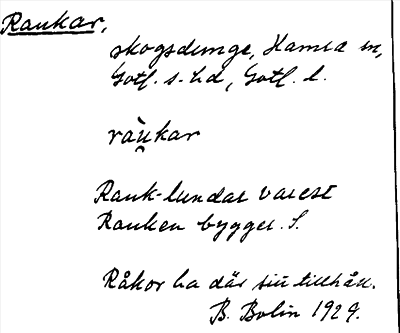 Raukar,
skogsdunge, Hamra sn,
Gotl. s. hd, Gotl. l.
ràu̯kar
Rauk-lundar varest
Rauken bygger. S.
Råkor ha där sin tillhåll.
B. Bolin 1929.